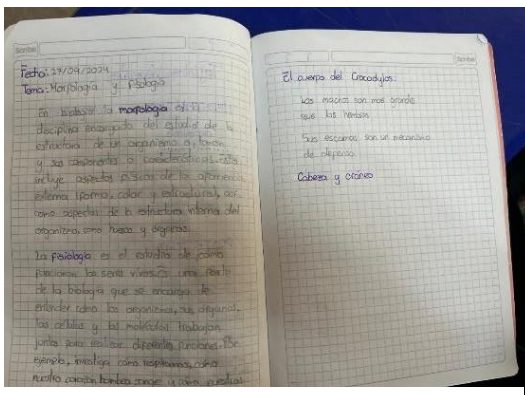 Scribe
Fecha: 27/09/2024
Tema: Morfología y Fisiología
En biología la morfología es la
disciplina encargada del estudio de la
estructura de un organismo o taxón
y sus componentes o características. Esto
incluye aspectos físicos de la apariencia
externa (forma, color y estructura), así
como aspectos de la estructura interna del
organismo, como huesos y órganos.
La fisiología es el estudio de cómo
funcionan los seres vivos. Es una parte
de la biología que se encarga de
entender cómo los organismos, sus órganos,
las células y las moléculas trabajan
juntos para realizar diferentes funciones. Por
ejemplo, investiga cómo respiramos, cómo
nuestro corazón bombea sangre y cómo nuestros
Scribe
El cuerpo del Crocodylos.
Los machos son mas grande
que las hembras
Sus escamas son un mecanismo
de defensa.
Cabeza y cráneo